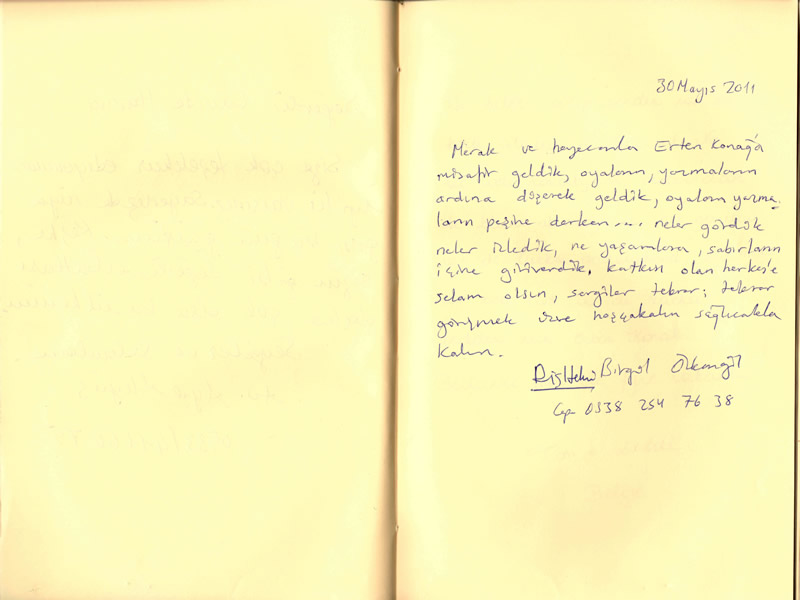 30 Mayıs 2011
Merak ve heyecanla Erten Konağ'a
misafir geldik, oyaların, yazmaların
ardına düşerek geldik, oyaların yazma-
ların peşine derken.... neler gördük
neler izledik, ne yaşamlara, sabırların
içine giriverdik. Katkısı olan herkes'e
selam olsun, sevgiler tekrar; tekrar
görüşmek üzre hoşçakalın sağlıcakla
kalın.
Diş Hekimi Birgül
Cep 0338 254 76 38